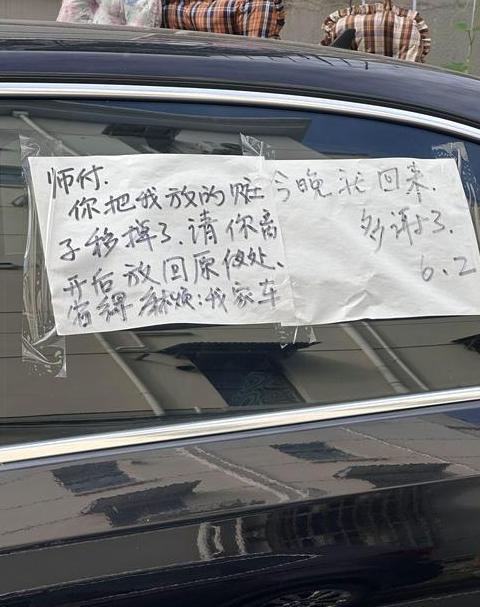 师付.
你把我放的
子移掉了.请你离
开后放回原位处、
省得麻烦:我家车
今晚 回来.
多谢了.
6.2